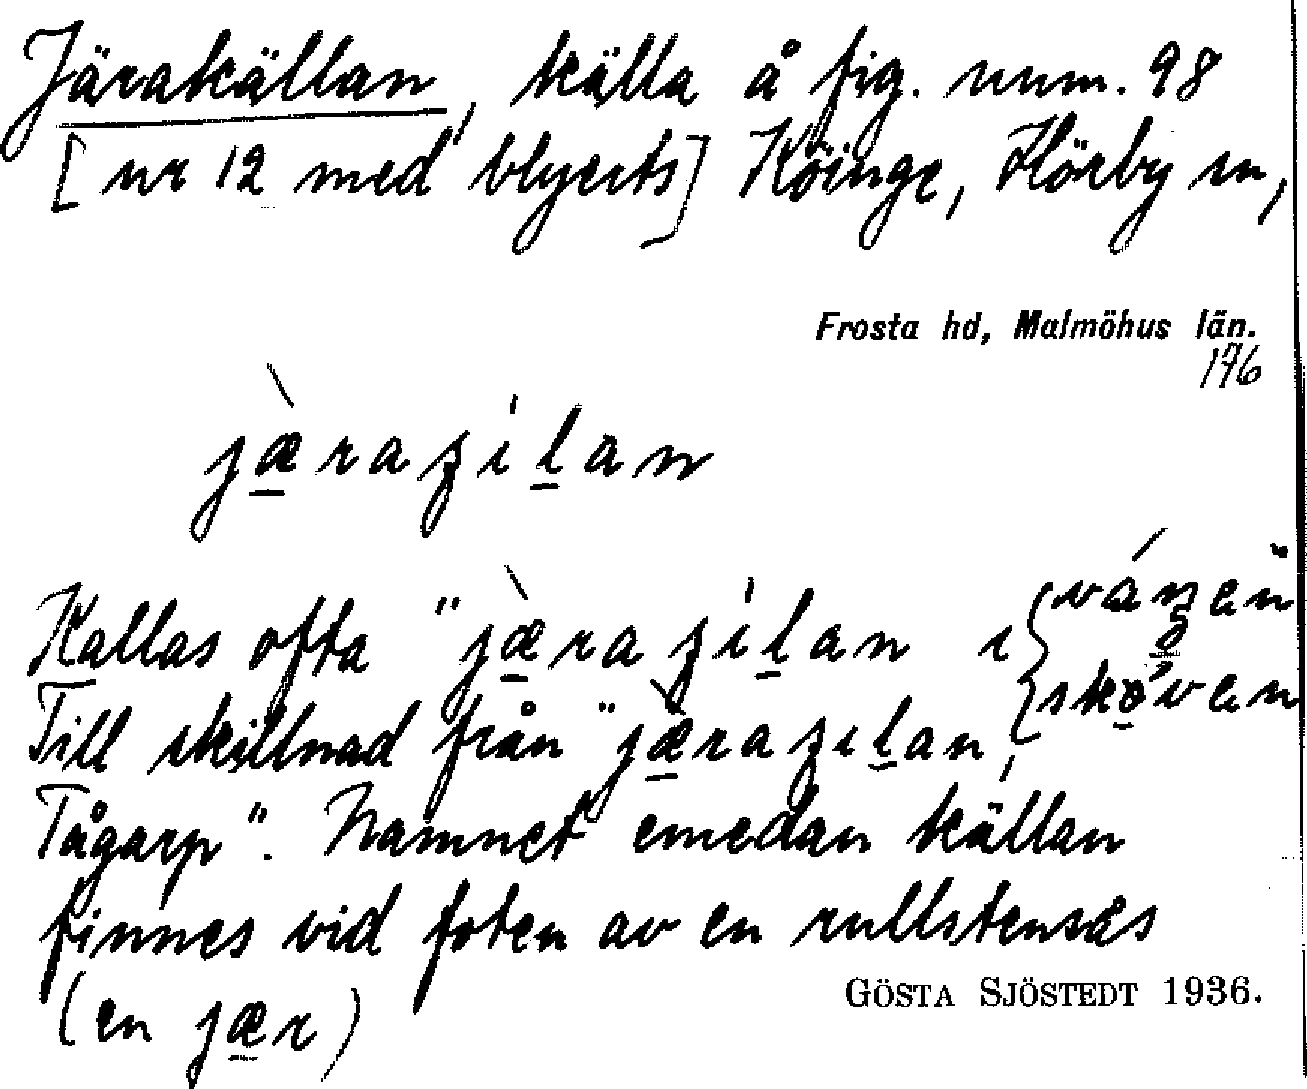 Järakällan, källa å fig. num. 98
[nr 12 med blyerts] Köinge, Hörby sn,
Frosta hd, Malmöhus län.
176
jæ̀raʒíl̠an
Kallas ofta "jæ̀raʒíl̠an i {
skǫ́ven
Till skillnad från "jæ̀raʒıl̠an,
Tågarp". Namnet emedan källan
finnes vid foten av en rullstensås
(en jær)
GÖSTA SJÖSTEDT 1936.